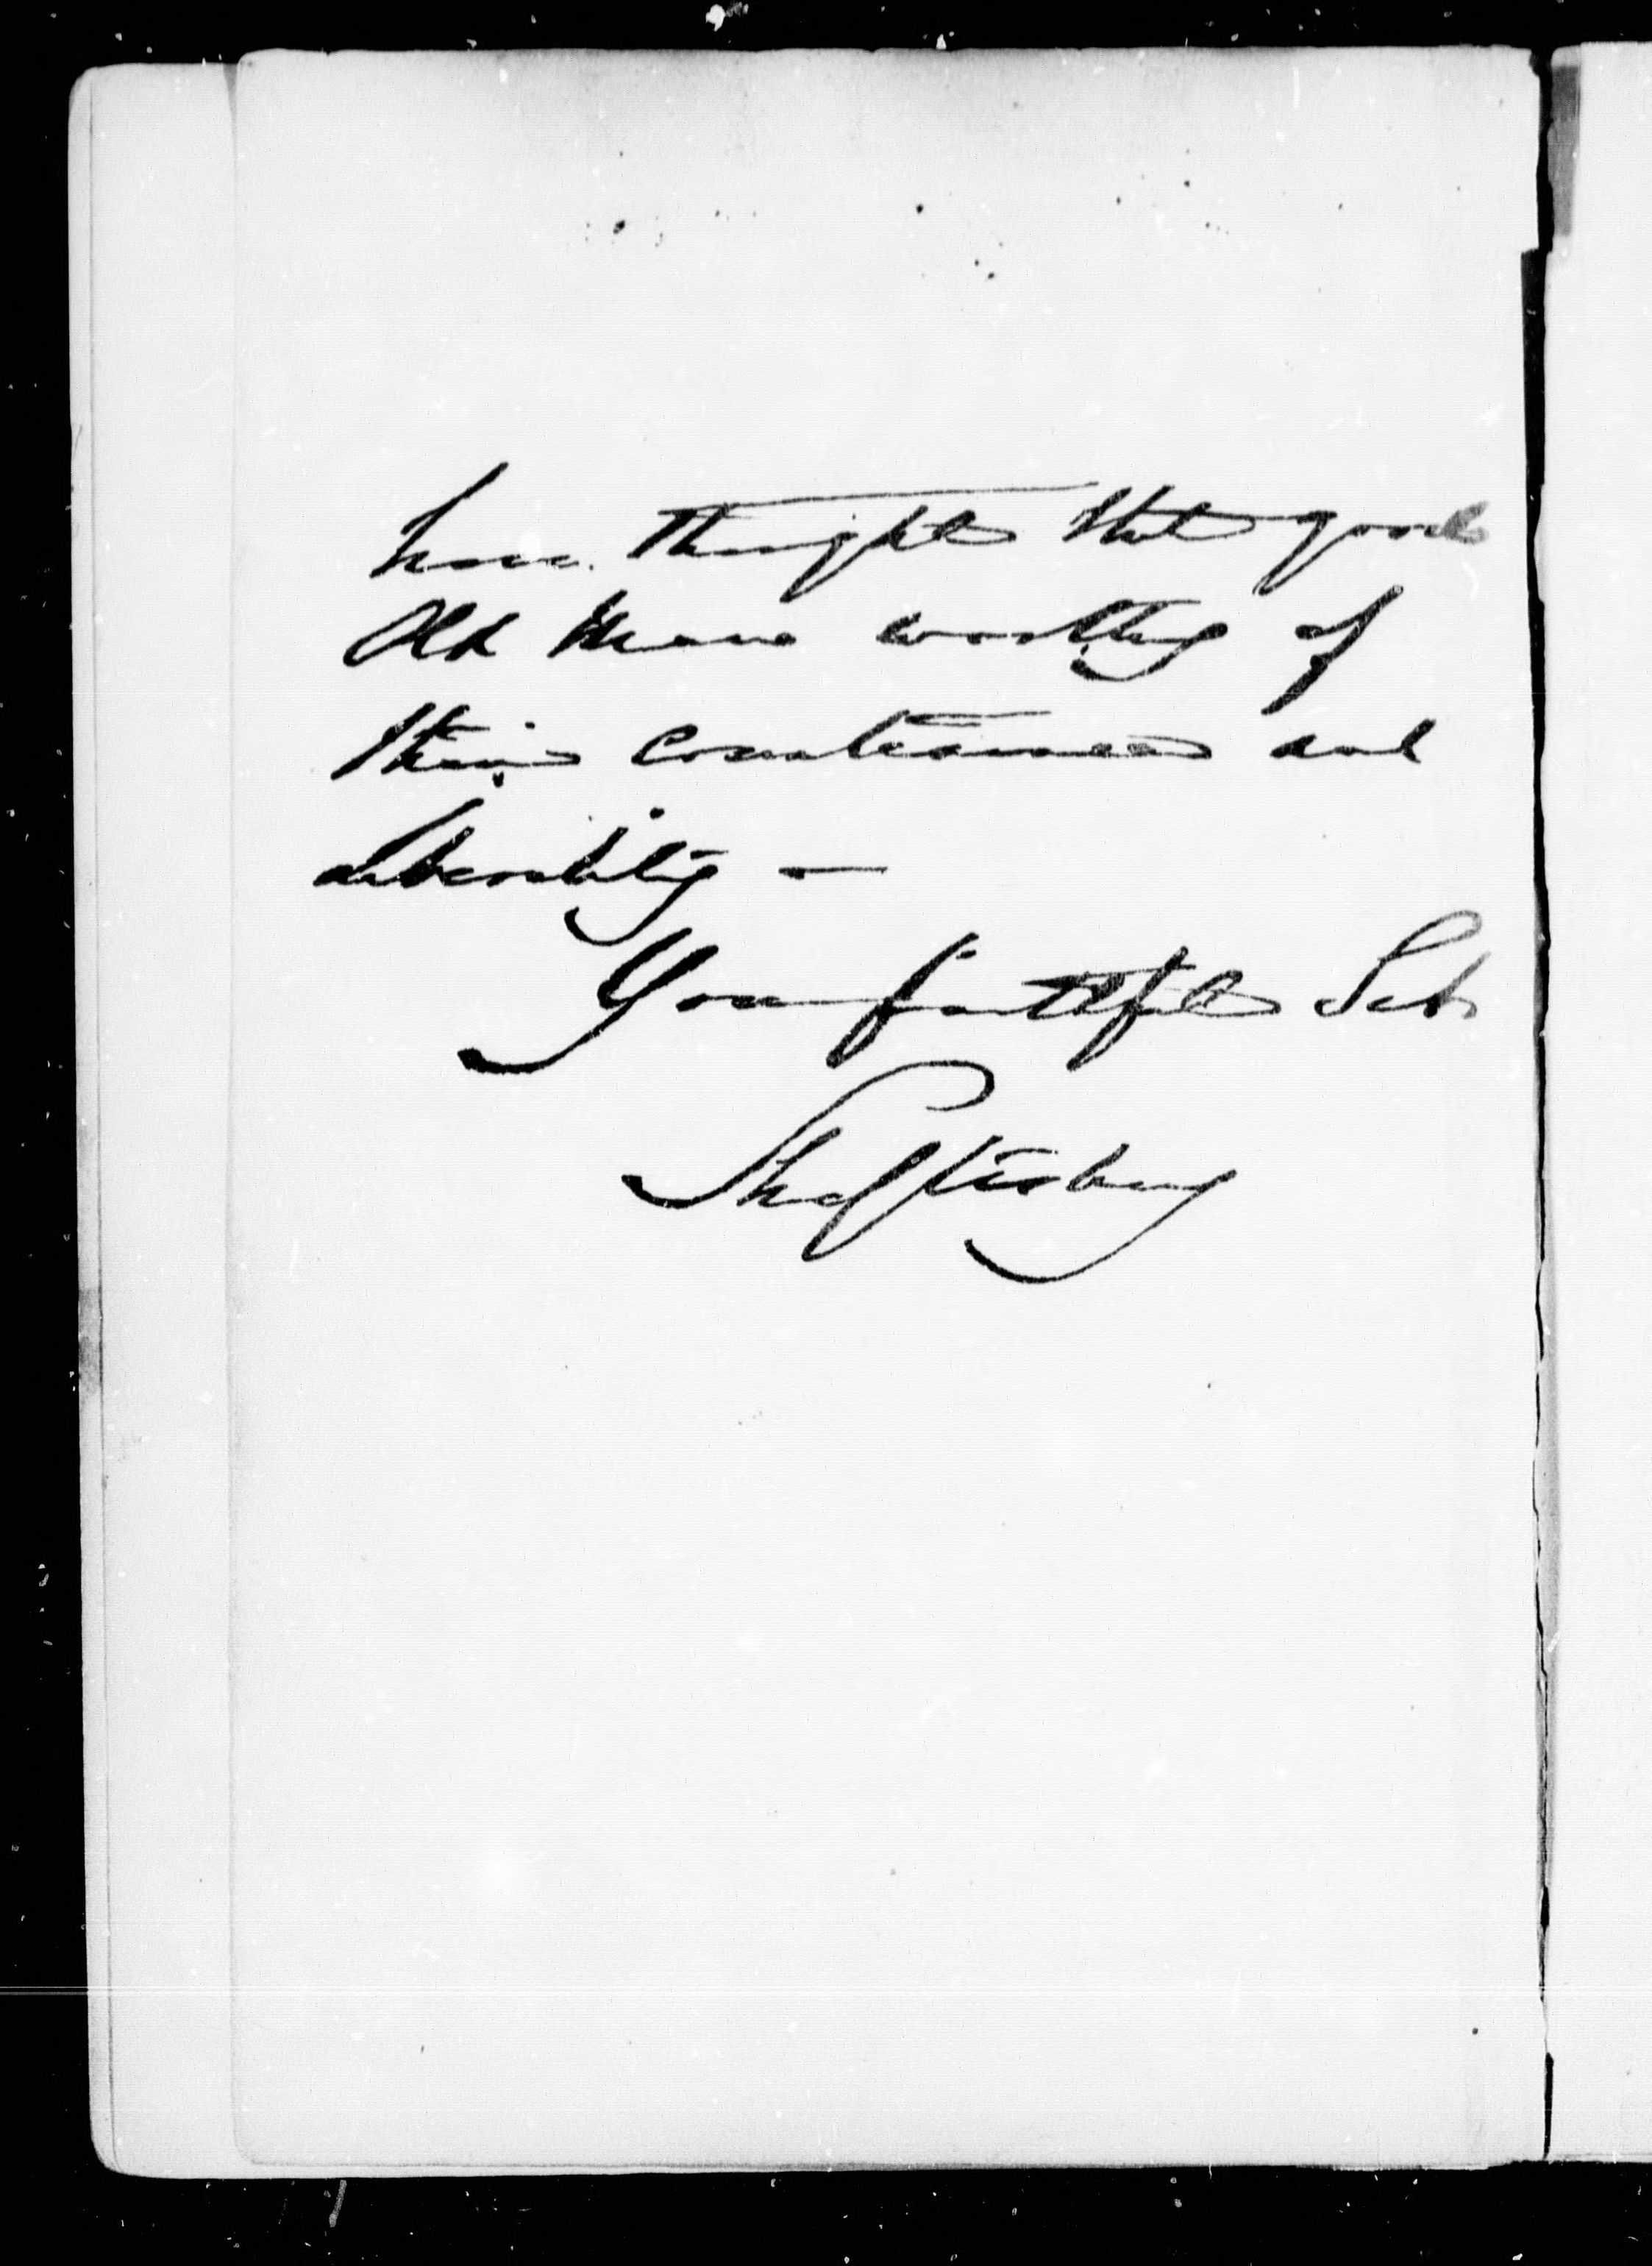 have thought that good
Old Man worthy of
their countenance and
liberality —
Your faithful Sert
Shaftesbury